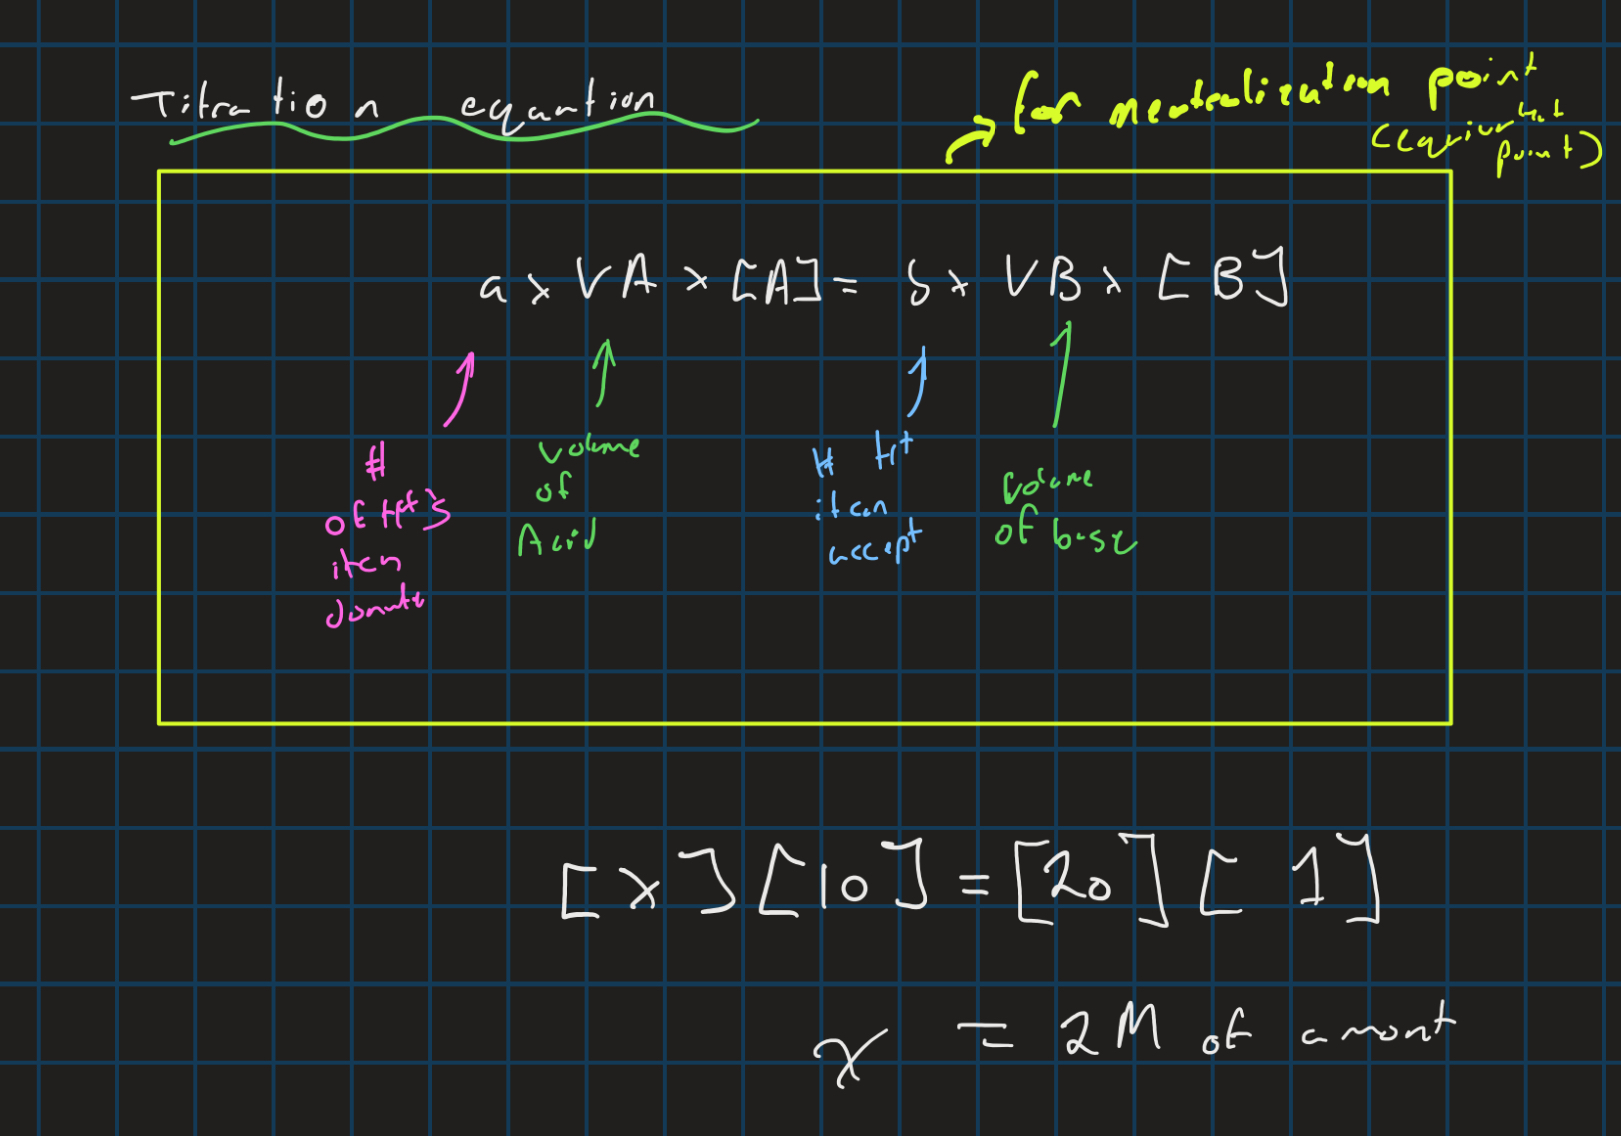 Titration equantion
for neutralization point
(Equivalent
point)
a x VA x [A] = b x VB x [B]
#
of H+'s
it can
donate
volume
of
Acid
# H+
it can
accept
Volume
of base
[x][10] = [20][1]
x = 2M of amont